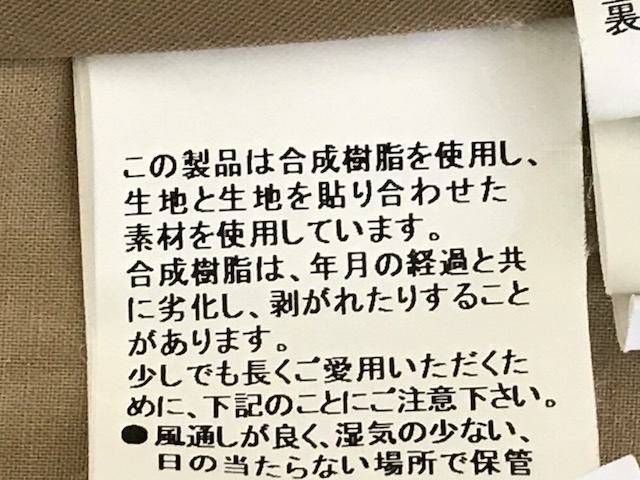 この製品は合成樹脂を使用し、
生地と生地を貼り合わせた
素材を使用しています。
合成樹脂は、年月の経過と共
に劣化し、剥がれたりすること
があります。
少しでも長くご愛用いただくた
めに、下記のことにご注意下さい。
●風通しが良く、湿気の少ない、
日の当たらない場所で保管
裏